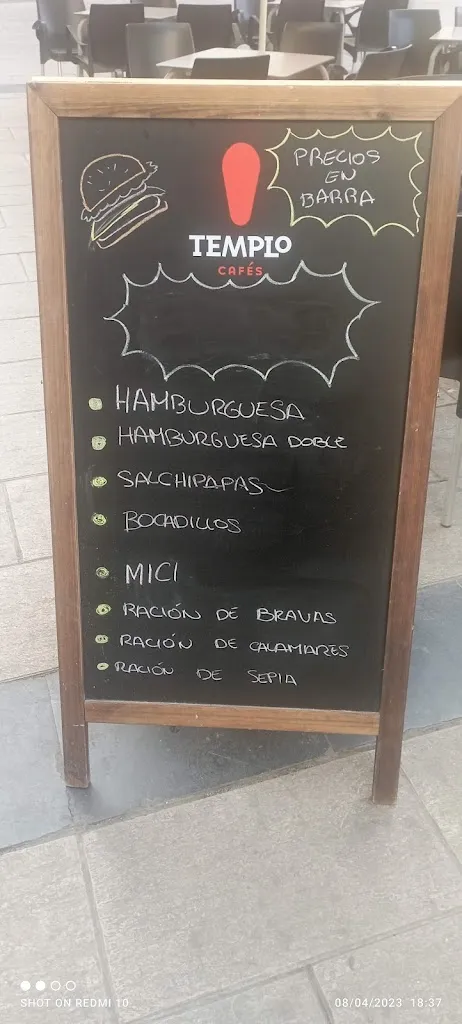 PRECIOS
EN
BARRA
TEMPLO
CAFÉS
HAMBURGUESA
HAMBURGUESA DOBLE
SALCHIPAPAS
BOCADILLOS
MICI
RACIÓN DE BRAVAS
RACIÓN DE CALAMARES
RACIÓN DE SEPIA
SHOT ON REDMI 10
08/04/2023 18:37